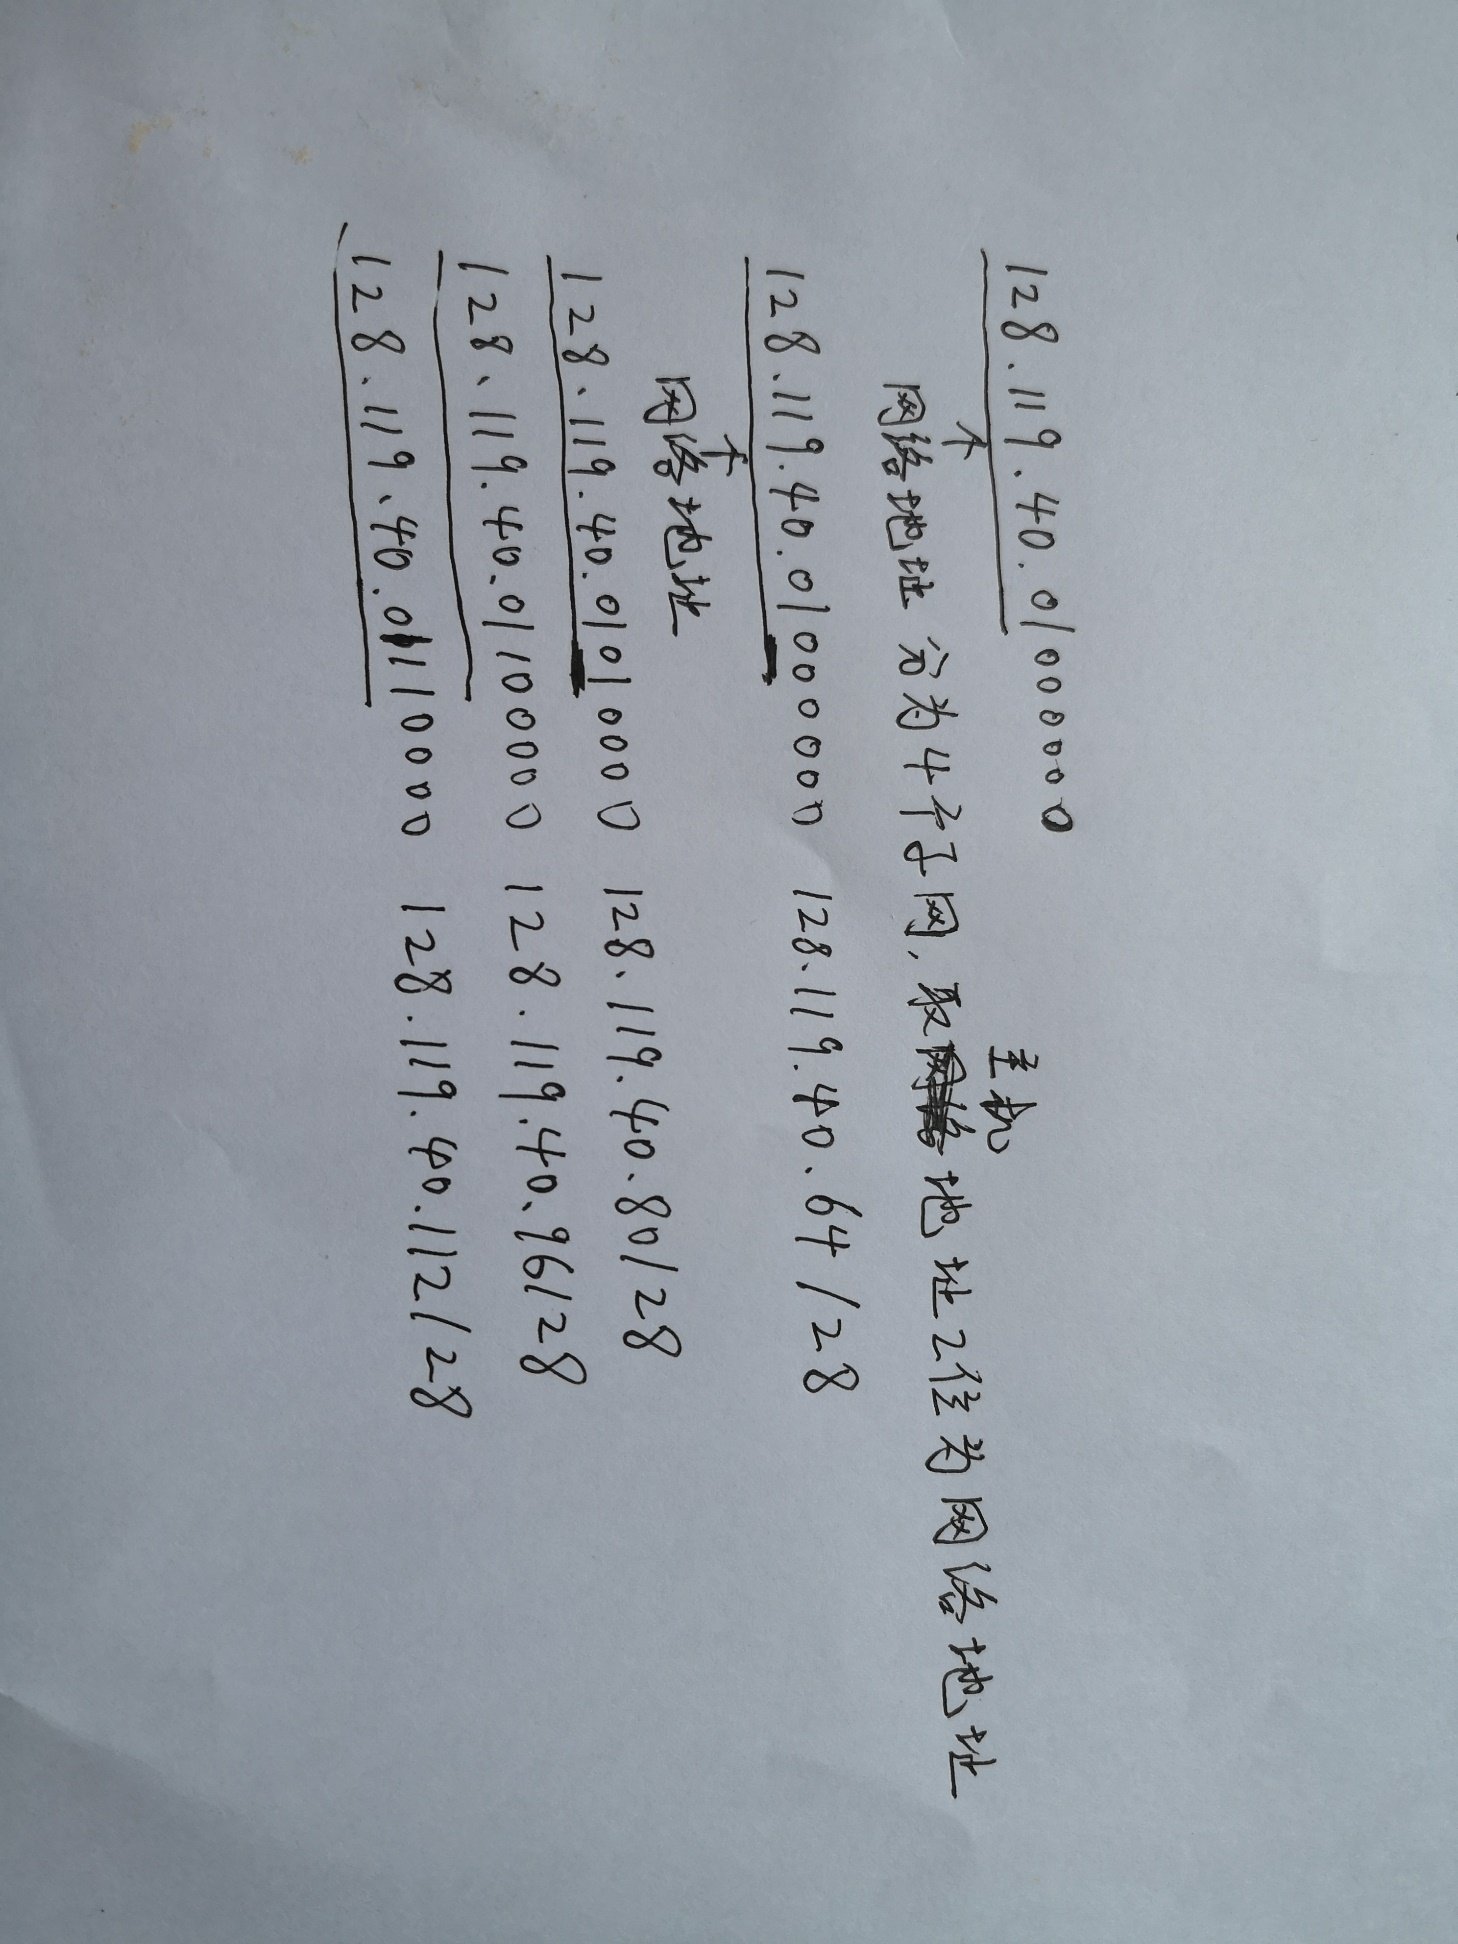 128.119.40.01000000
↑
网络地址 分为4个子网,取主机地址2位为网络地址
128.119.40.01000000 128.119.40.64/28
↑
网络地址
128.119.40.01010000 128.119.40.80/28
128.119.40.01100000 128.119.40.96/28
128.119.40.01110000 128.119.40.112/28